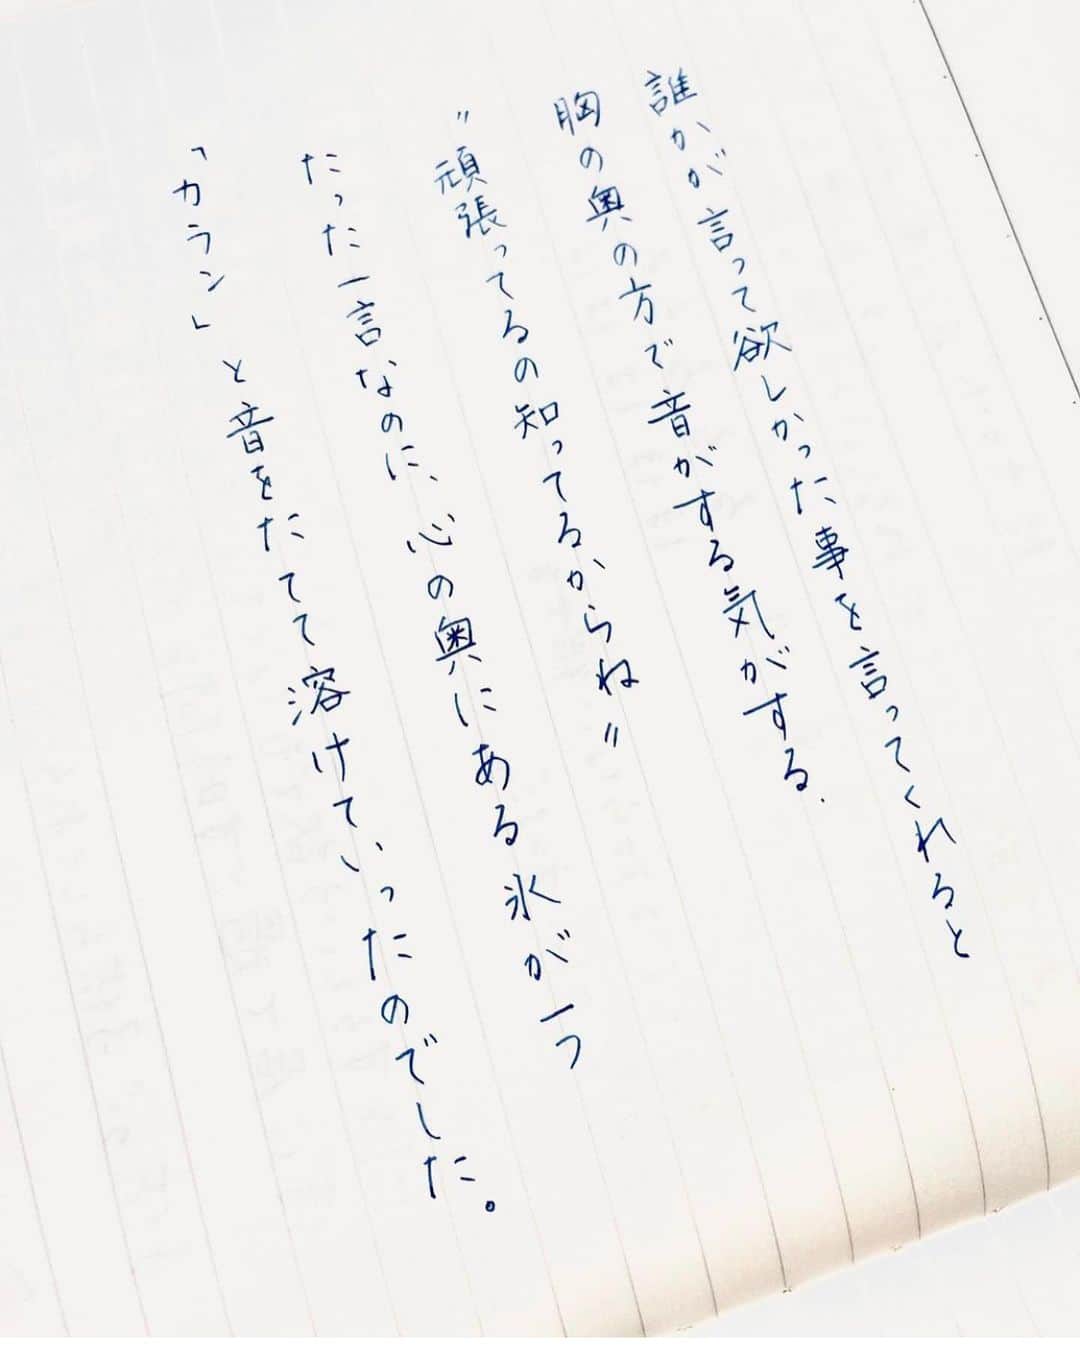 誰かが言って欲しかった事を言ってくれると
胸の奥の方で音がする気がする.
〃頑張ってるの知ってるからね〃
たった一言なのに、心の奥にある氷が一つ
「カラン」と音をたてて溶けていったのでした。